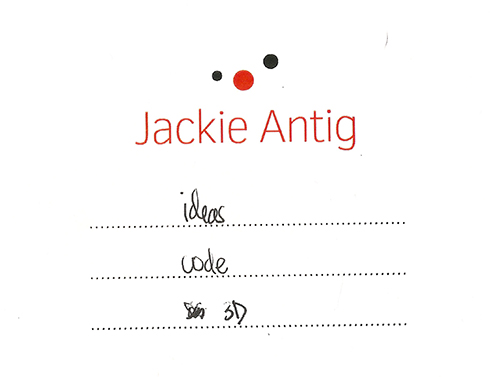 Jackie Antig
ideas
code
3D